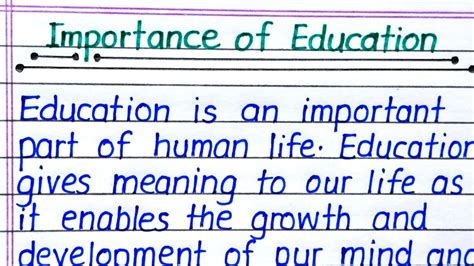 Importance of Education
Education is an important
part of human life. Education
gives meaning to our life as
it enables the growth and
development of our mind and